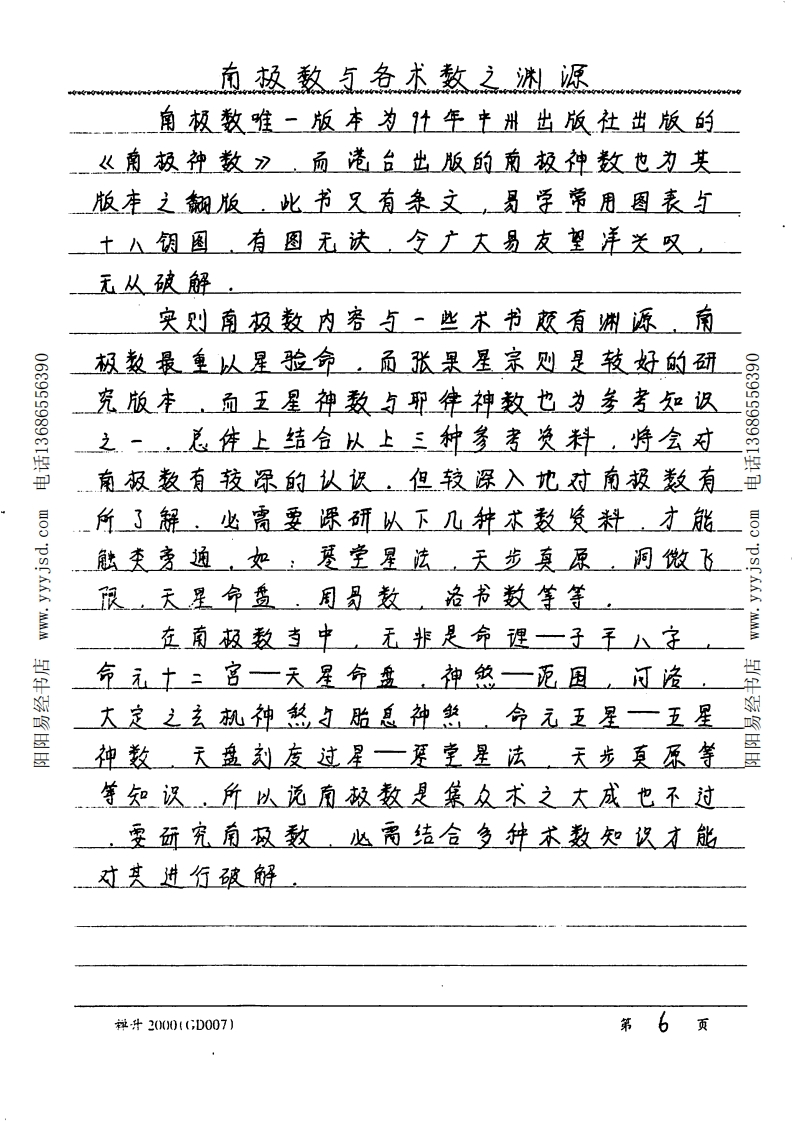 南极数与各术数之渊源
南极数唯一版本为94年中州出版社出版的
《南极神数》.而港台出版的南极神数也为其
版本之翻版.此书只有条文,易学常用图表与
十八钥图.有图无诀.令广大易友望洋兴叹,
无从破解.
实则南极数内容与一些术书颇有渊源.南
极数最重以星验命.而张果星宗则是较好的研
究版本.而五星神数与耶律神数也为参考知识
之一.总体上结合以上三种参考资料.将会对
南极数有较深的认识.但较深入地对南极数有
所了解.必需要深研以下几种术数资料.才能
触类旁通.如:琴堂星法,天步真原.洞微飞
限.天星命盘.周易数,洛书数等等.
在南极数当中,无非是命理——子平八字,
命元十二宫——天星命盘.神煞——范围,河洛.
大定之玄机神煞与胎息神煞.命元五星——五星
神数.天盘刻度过星——琴堂星法,天步真原等
等知识.所以说南极数是集众术之大成也不过
.要研究南极数.必需结合多种术数知识才能
对其进行破解.
2000(GD007)
第 6 页
阳阳易经书店 www.yyyjsd.com 电话13686556390
阳阳易经书店 www.yyyjsd.com 电话13686556390